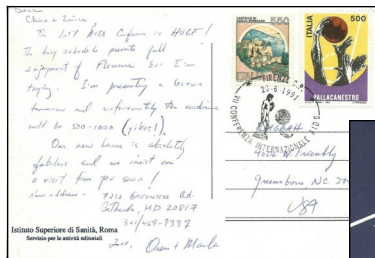 Dear
The Int'l AIDS Conference is HUGE!
The busy schedule prevents full
enjoyment of Florence but I'm
trying. I'm presenting a lecture
tomorrow and unfortunately the audience
will be 500-1000 (yikes!).
Our new house is absolutely
fabulous and we insist on
a visit from you soon!
New address - 7212 Greentree Rd.
Bethesda, MD 20817
301/469-9337
Love,
Istituto Superiore di Sanità, Roma
Servizio per le attività editoriali
550
ITALIA
500
PALLACANESTRO
FIRENZE
20-6-1991
VII CONFERENZA INTERNAZIONALE AIDS
W. Friendly
Greensboro NC 274
USA